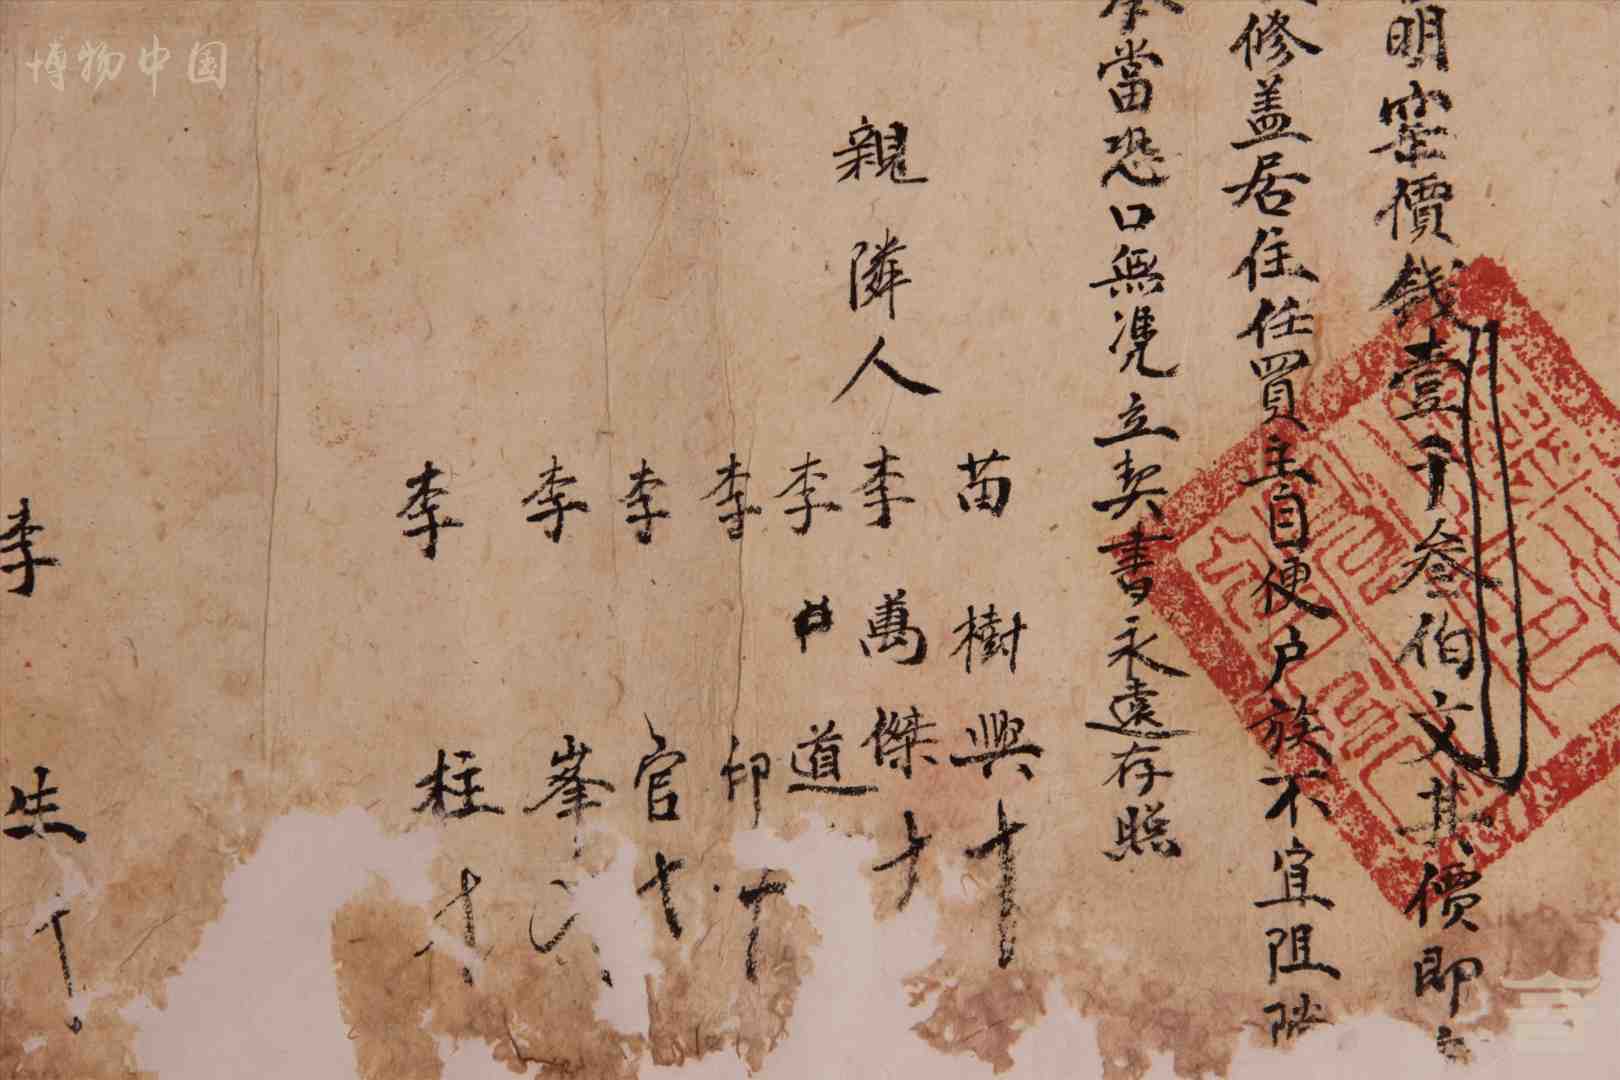 明窑價錢壹千叁伯文其價即
修盖居住任買主自便户族不宜阻
當恐口無凴立契書永遠存照
親隣人
苗樹興十
李萬傑十
李中道
李印十
李官十
李峯
李柱十
李生
博物中国